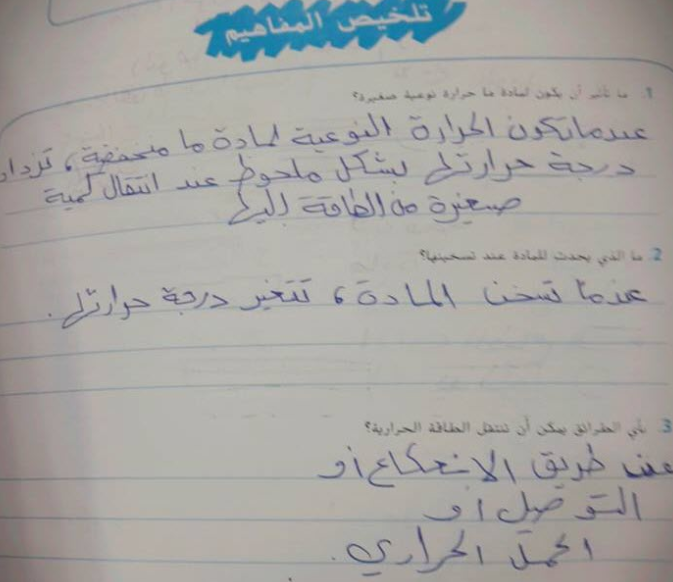 تلخيص المفاهيم
1. ما تأثير أن يكون لمادة ما حرارة نوعية صغيرة؟
عندما تكون الحرارة النوعية لمادة ما منخفضة، تزداد
درجة حرارتها بشكل ملحوظ عند انتقال كمية
صغيرة من الطاقة إليها
2. ما الذي يحدث للمادة عند تسخينها؟
عندما تسخن المادة، تتغير درجة حرارتها.
3. بأي الطرائق يمكن أن تنتقل الطاقة الحرارية؟
عن طريق الانعكاع أو
التوصيل أو
الحمل الحراري.